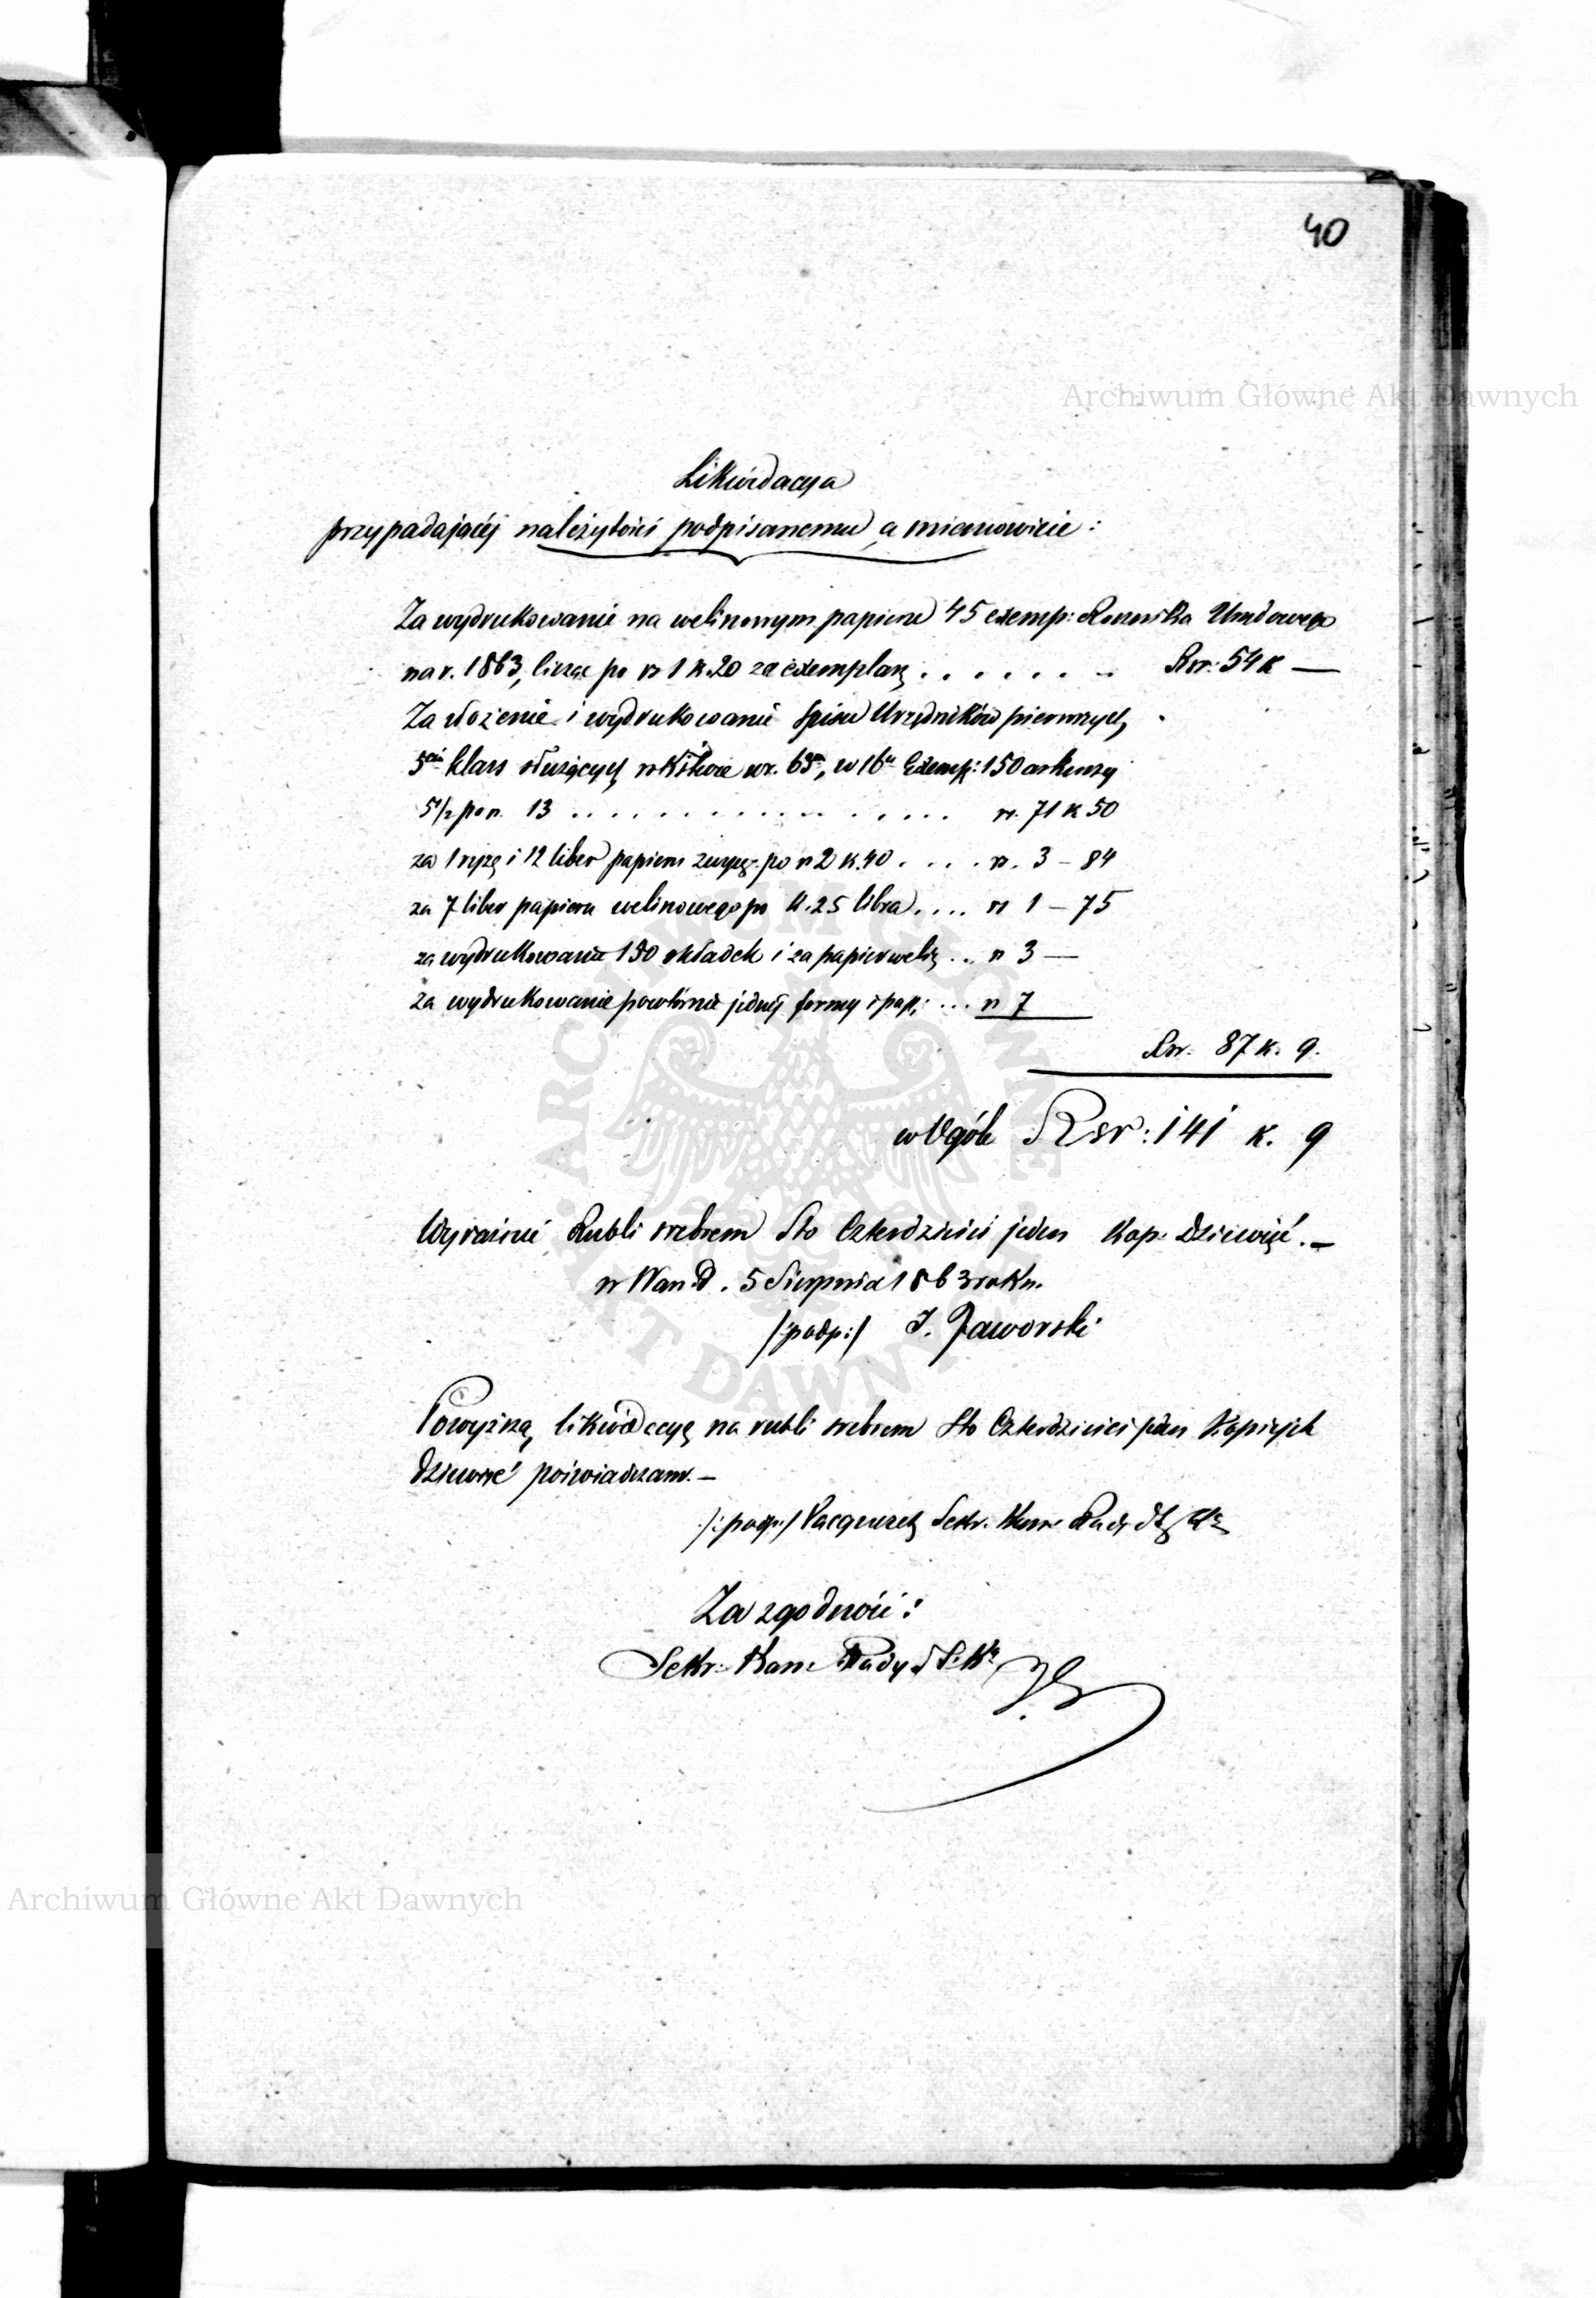 40
Archiwum Główne Akt Dawnych
Likwidacya
przypadającéj należytości podpisanemu, a mianowicie:
Za wydrukowanie na welinowym papierze 45 exemp: Rocznika Urzędowego
na r. 1863, licząc po rs 1 k. 20 za exemplarz . . . . . . . Rsr: 54 k —
Za złożenie i wydrukowanie Spisu Urzędników pierwszych
5ciu klass służących w Król: w r. 63m, w 16ce Exemp: 150 arkuszy
5 1/2 po rs. 13 . . . . . . . . . . . . . . . . rs. 71 k 50
za 1 ryzę i 12 liber papieru zwycz. po rs 2 k. 40 . . . . rs. 3 – 84
za 7 liber papieru welinowego po k. 25 libra . . . . rs 1 – 75
za wydrukowanie 150 okładek i za papier welin. . . . rs 3 —
za wydrukowanie powtórnie jednéj formy i pap: . . . rs 7
Rsr. 87 k. 9.
w Ogóle Rsr: 141 k. 9
Wyraźnie Rubli srebrem Sto Czterdzieści jeden Kop: Dziewięć. —
w Warsz. d. 5 Sierpnia 1863 roku.
/:podp:/ J. Jaworski
Powyższą likwidacyę na rubli srebrem Sto Czterdzieści jeden Kopiejek
dziewięć poświadczam. —
/:podp:/ Sekr. Rady
Za zgodność:
Sekr: Kan: Rady
ARCHIWUM GŁÓWNE AKT DAWNYCH
Archiwum Główne Akt Dawnych